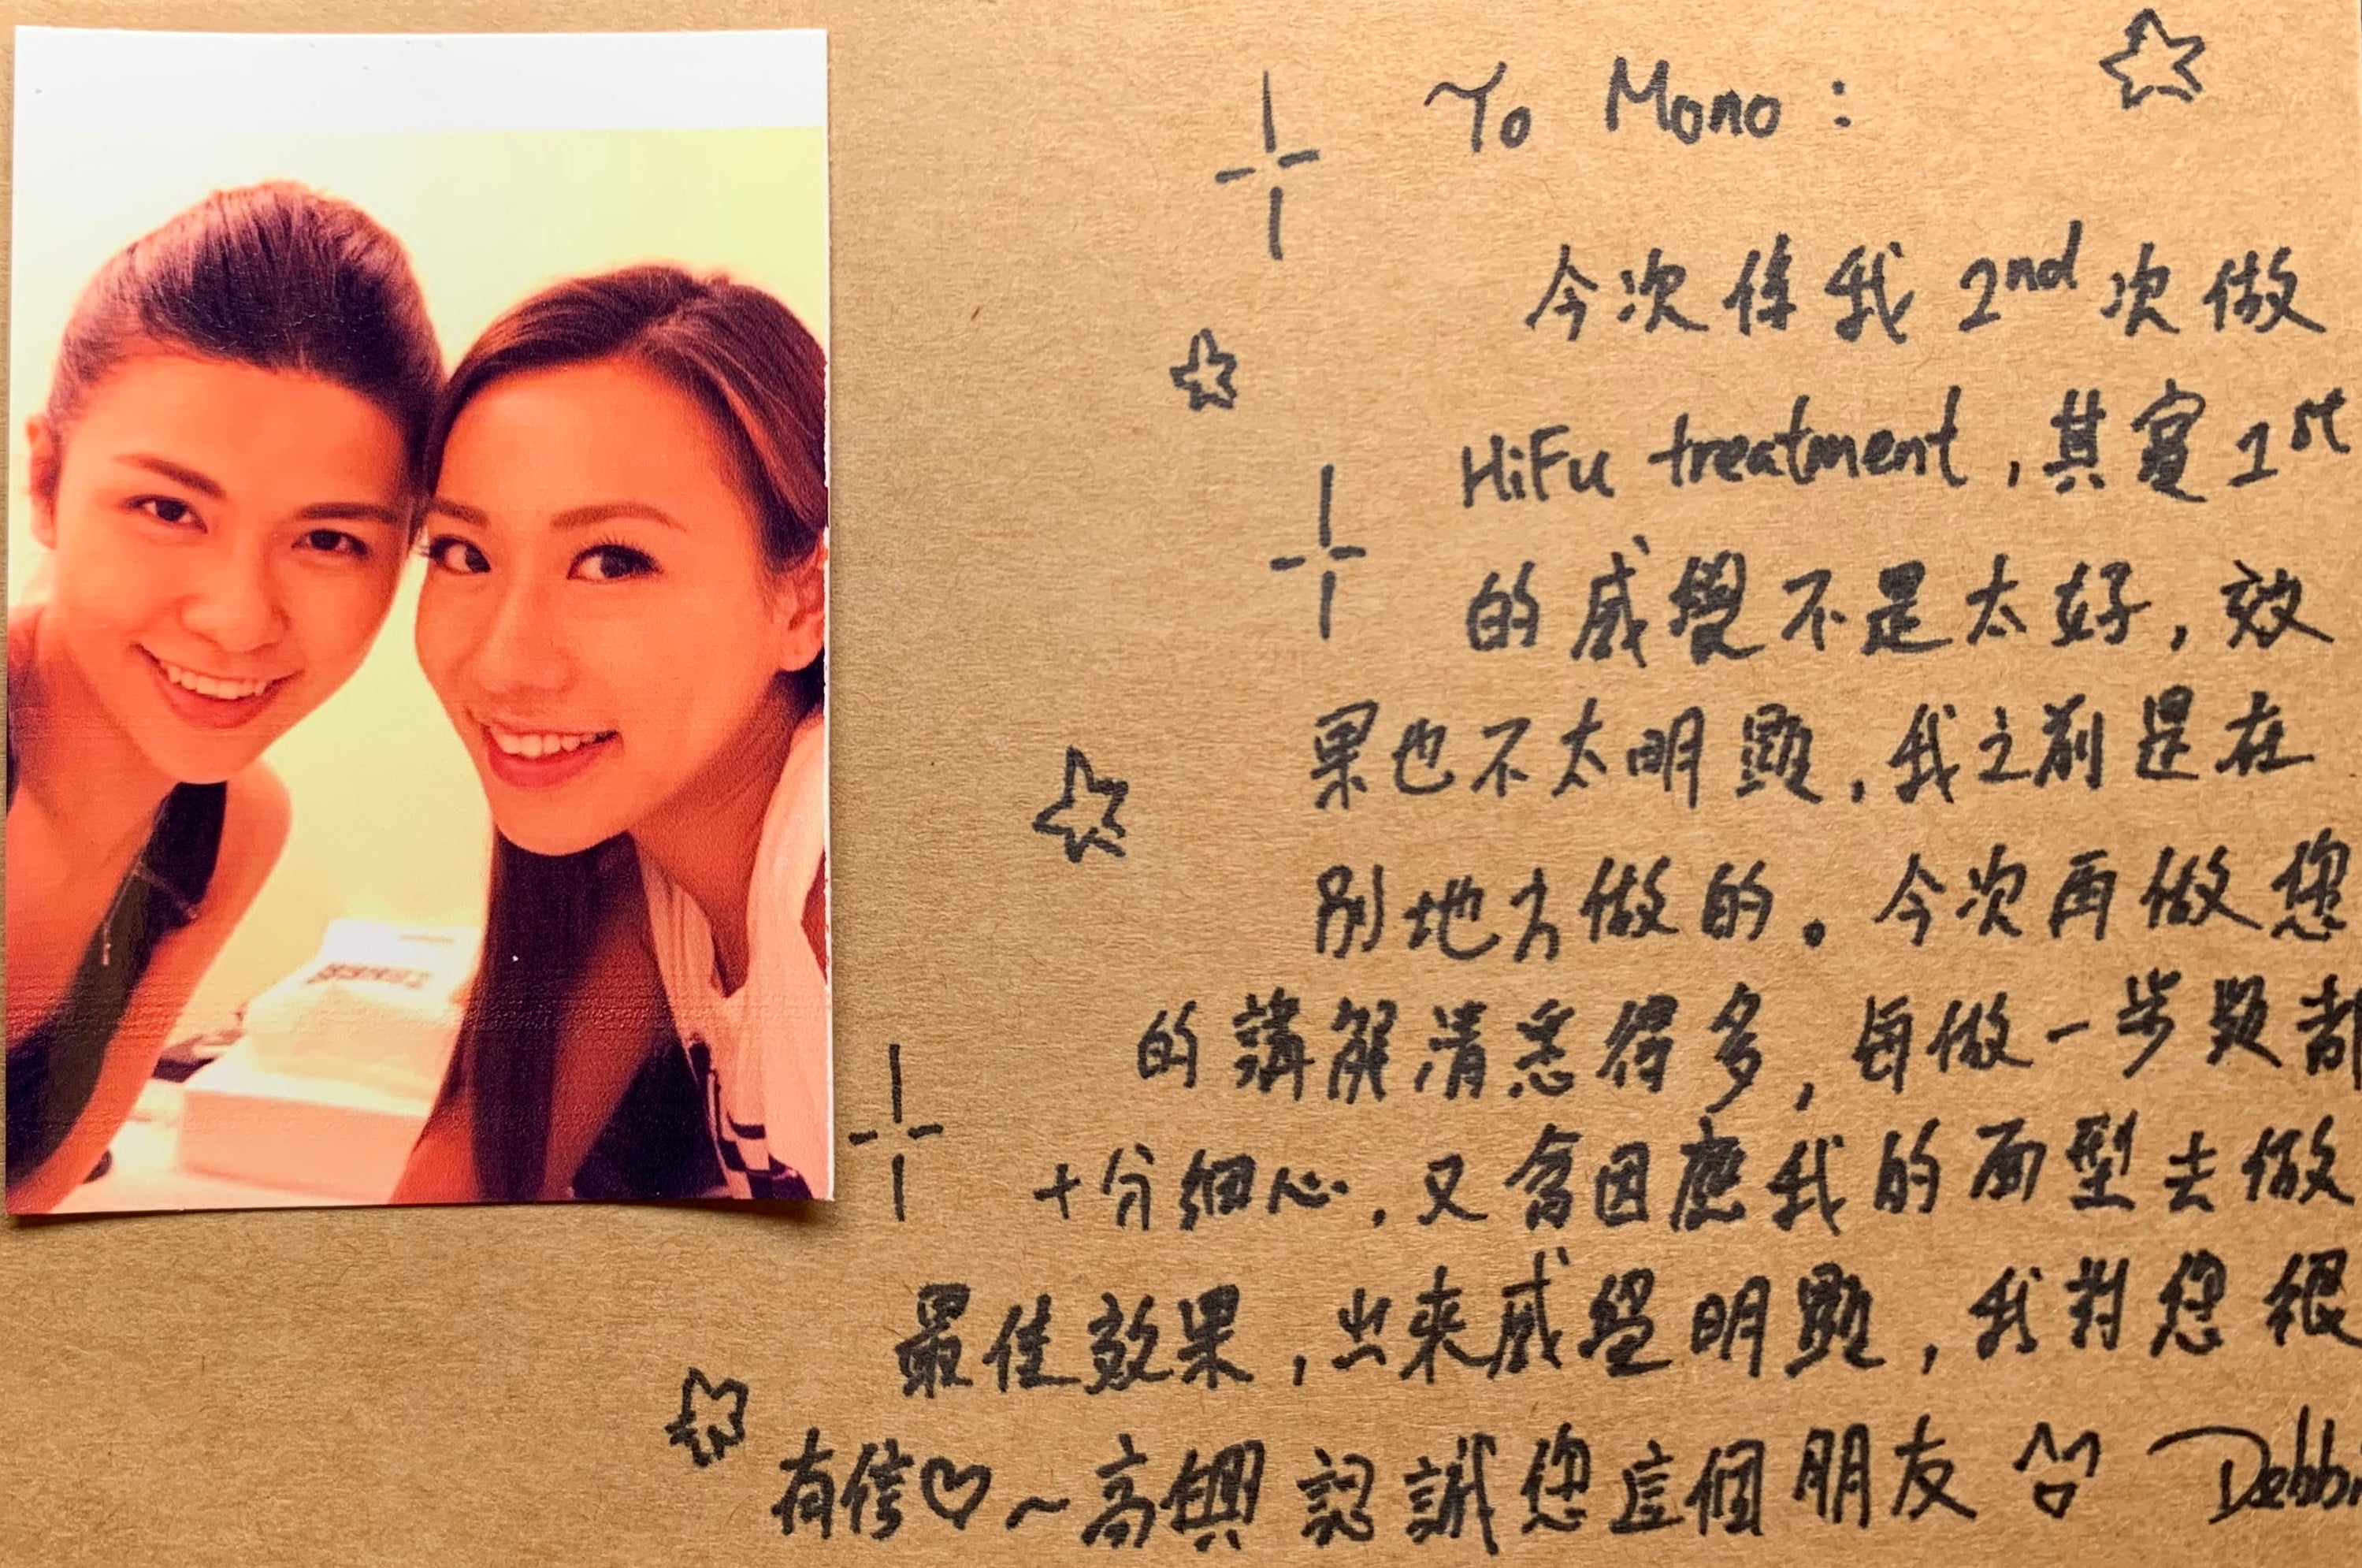 To Mono :
今次係我 2nd 次做
HiFu treatment , 其實 1st
的感覺不是太好 , 效
果也不太明顯 , 我之前是在
別地方做的 。 今次再做您
的講解清悉得多 , 每做一步驟都
十分細心 , 又會因應我的面型去做
最佳效果 , 出來感覺明顯 , 我對您很
有信♡～高興認識您這個朋友